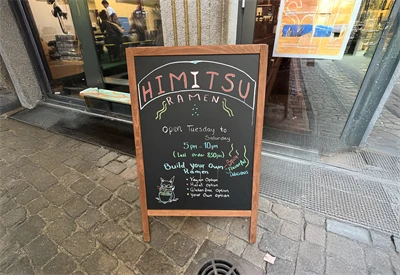 HIMITSU
RAMEN
Open Tuesday to
Saturday
5pm - 10pm
(last order 8:50pm)
Build your Own
Ramen
• Vegan Option
• Halal Option
• Gluten free Option
• your Own Option
Delicious